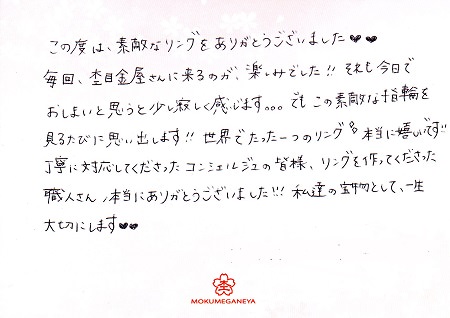 この度は、素敵なリングをありがとうございました♥♥
毎回、杢目金屋さんに来るのが、楽しみでした!! それも今日で
おしまいと思うと少し寂しく感じます。。。でもこの素敵な指輪を
見るたびに思い出します!! 世界でたった一つのリング 本当に嬉しいです!!
丁寧に対応してくださったコンシェルジュの皆様、リングを作ってくださった
職人さん、本当にありがとうございました!!! 私達の宝物として、一生
大切にします♥♥
MOKUMEGANEYA